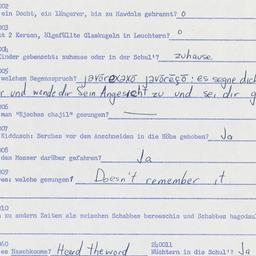 002
ein Docht, ein längerer, bis zu Hawdole gebrannt? 0
003
ht 2 Kerzen, Ölgefüllte Glaskugeln in Leuchtern? 0
Kinder gebenscht: zuhause oder in der Schul'? zuhause
005
welchem Segensspruch? : es segne dich
r und wende dir Sein Angesicht zu und sei dir g
006
man "Ejsches chajil" gesungen? —
007
Kiddusch: Barches vor dem Anschneiden in die Höhe gehoben? Ja
008
dem Messer darüber gefahren? Ja
009
res: welche gesungen? Doesn't remember it
010
n zu andern Zeiten als zwischen Schabbes bereeschis und Schabbes hagodaul
240 240011
es Naschkoome? Heard the word Nüchtern in die Schul'? Ja